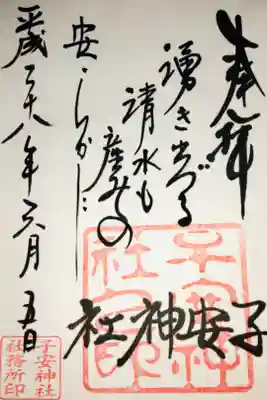 奉拝
湧き出づる
清水も
産みの
安
子安神社
平成二十八年六月五日
子安神社
社務所印